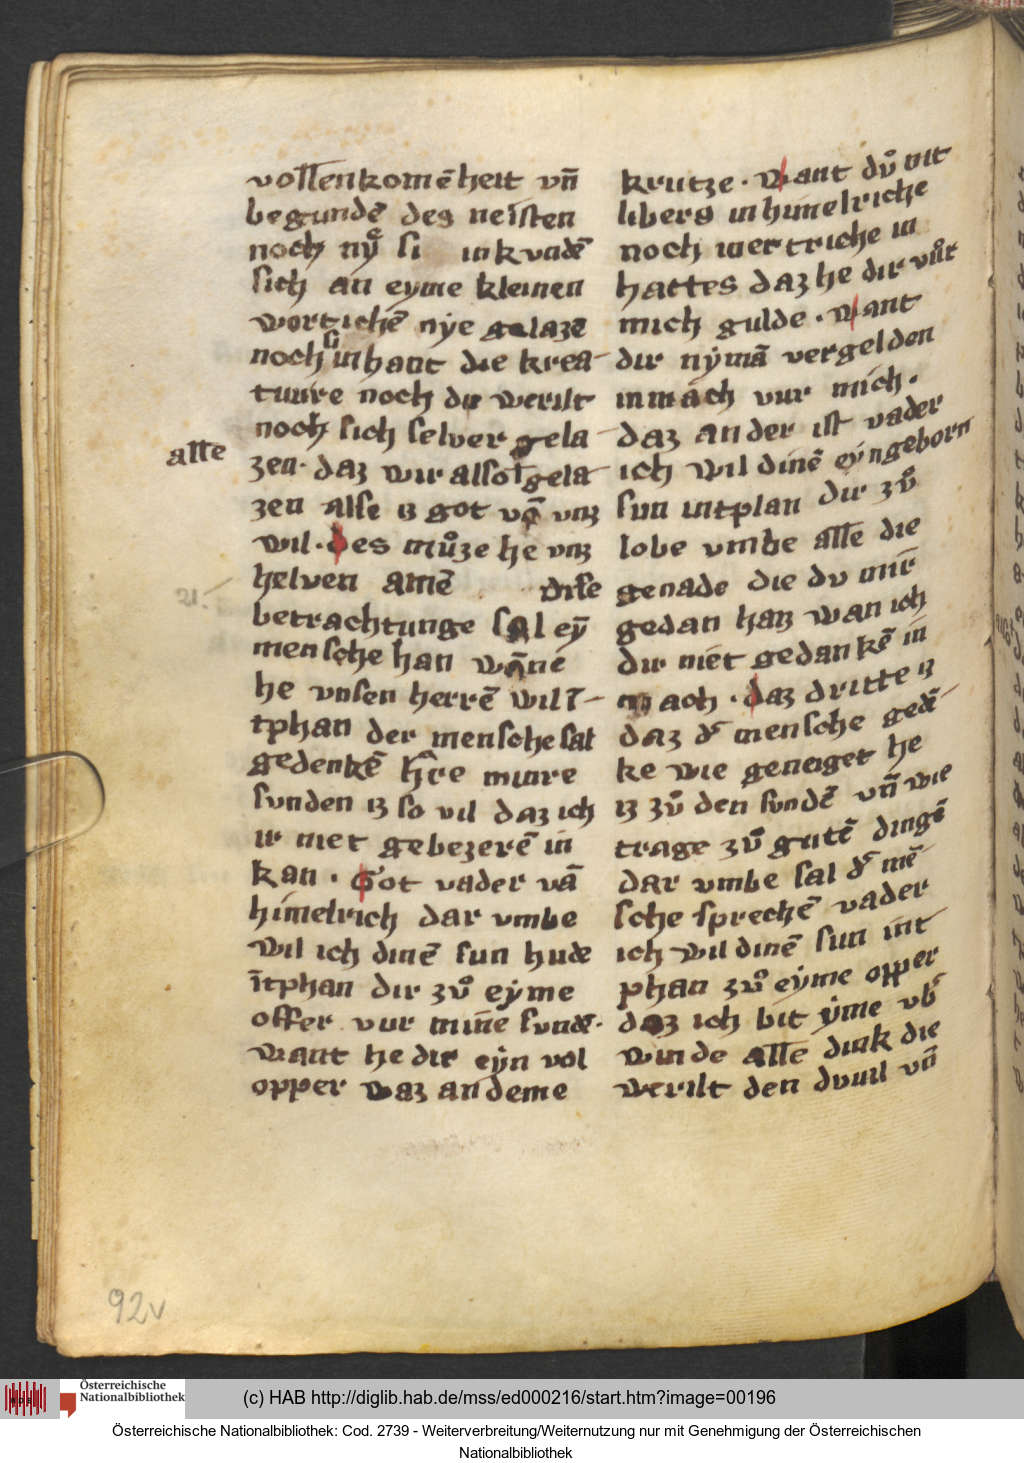 vollenkomēheit vn̄
begundē des neisten
noch ny̆ si in kvndē
sich an eyme kleinen
wortichē nýe gelazē
noch si in hant die krea-
ture noch du werilt
noch sich selver gela-
alle
zen· daz wir also gela-
zen alse iz got vō vnz
wil· des muͦze he vnz
helven amē dise
betrachtunge sal eȳ
mensche han wāne
he vnsen herrē wil ī-
tphan der mensche sal
gedenkē h̄re minre
svnden iz so vil daz ich
ir niet gebezerē in
kan · Got vader vā
himelrich dar vmbe
wil ich dinē sun hude
ītphan dir zvͦ eýme
offer vur mīne svnde·
want he dir eýn vol
opper waz an deme
krutze · want dvͦ nit
libers in himelriche
noch in ertriche in
hattes daz he dir vuͦr
mich gulde · want
dir nýmā vergelden
in mach vur mich ·
daz ander ist vader
ich wil dinē eýngeborn
sun intplan dir zvͦ
lobe vmbe alle die
genade die dv mir
gedan haz wan ich
dir niet gedankē in
mach · daz dritte iz
daz d' mensche gedē-
ke wie geneiget he
iz zvͦ den svndē vn̄ wie
trage zvͦ gutē dingē
dar vmbe sal d' mē-
sche sprechē vader
ich wil dinē sun int-
phan zvͦ eýme opper
daz ich bit ýme vb'
winde alle dink die
werilt den dvuil vn̄
92v
Österreichische
Nationalbibliothek
(c) HAB http://diglib.hab.de/mss/ed000216/start.htm?image=00196
Österreichische Nationalbibliothek: Cod. 2739 - Weiterverbreitung/Weiternutzung nur mit Genehmigung der Österreichischen
Nationalbibliothek